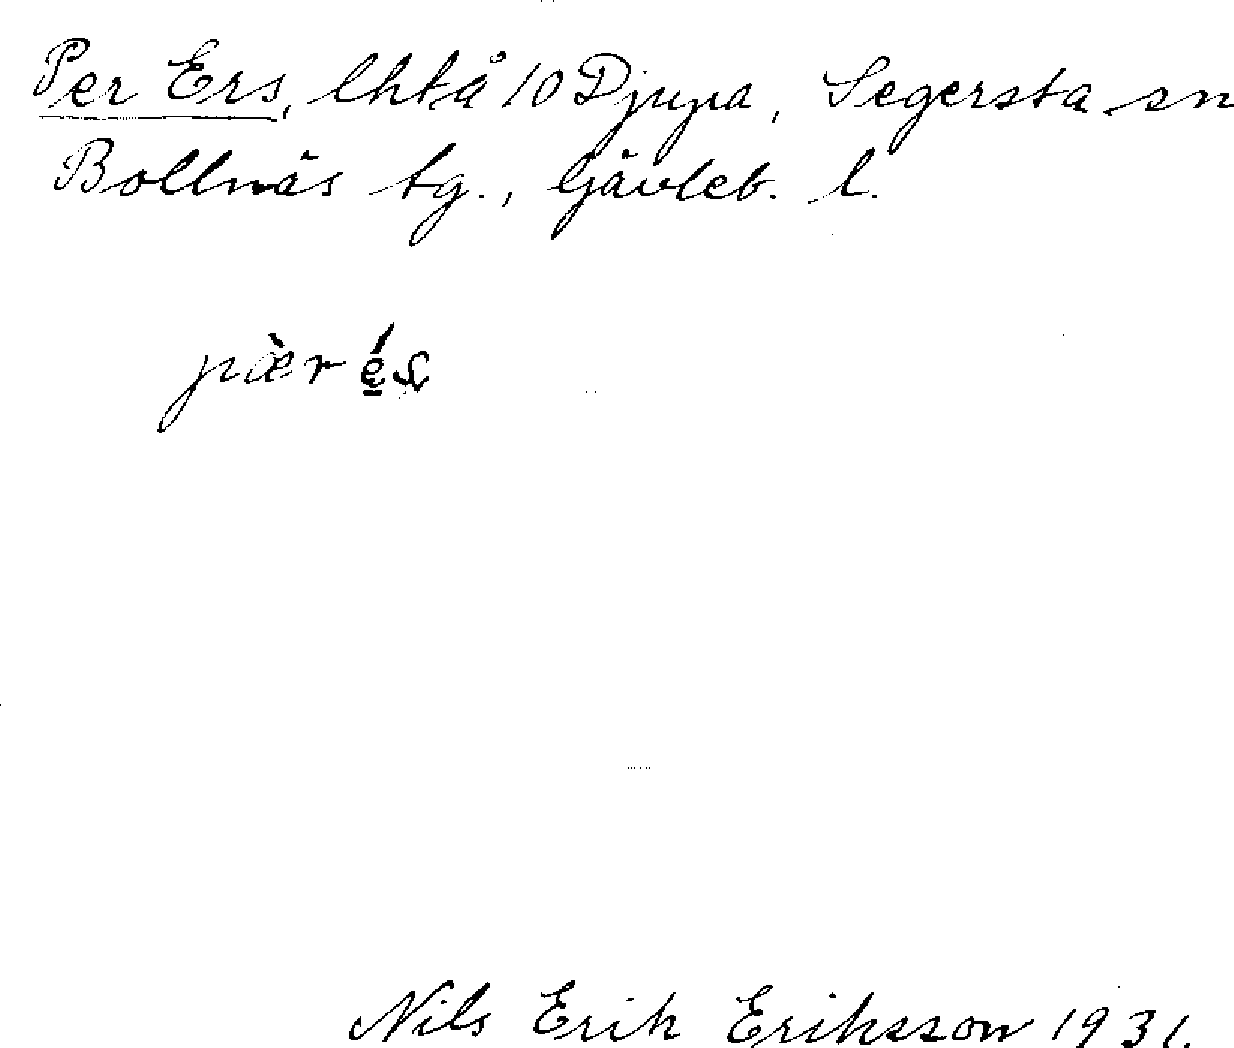 Per Ers, lhtå 10 Djupa, Segersta sn
Bollnäs tg., Gävleb. l.
pær
Nils Erik Eriksson 1931.